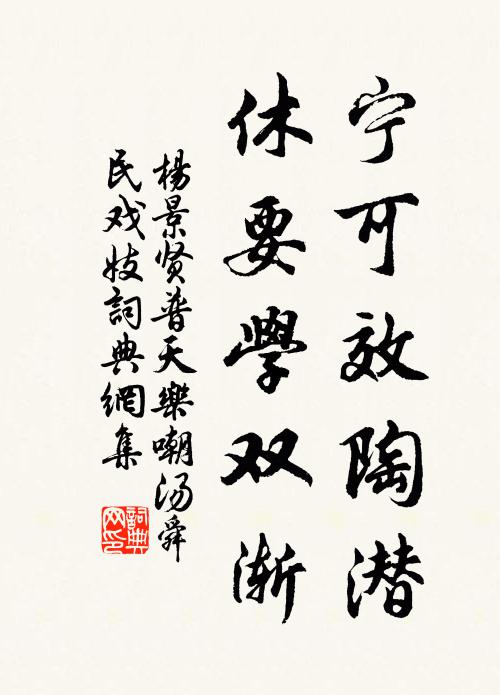 宁可效陶潜
休要學双渐
楊景贤普天樂嘲汤舜
民戏妓詞典網集
詞典网印